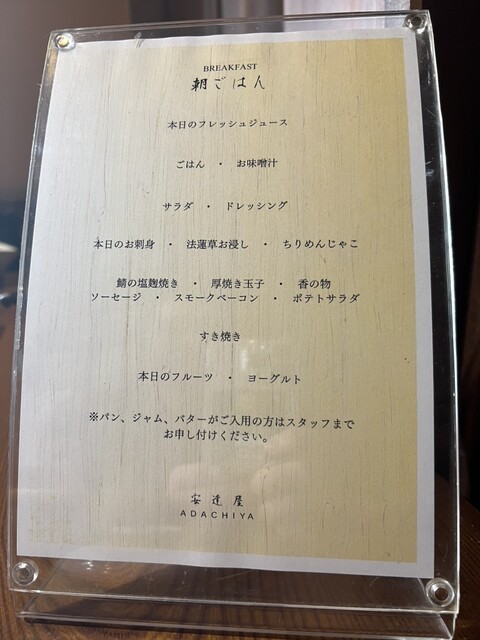 BREAKFAST
朝ごはん
本日のフレッシュジュース
ごはん ・ お味噌汁
サラダ ・ ドレッシング
本日のお刺身 ・ 法蓮草お浸し ・ ちりめんじゃこ
鯖の塩麹焼き ・ 厚焼き玉子 ・ 香の物
ソーセージ ・ スモークベーコン ・ ポテトサラダ
すき焼き
本日のフルーツ ・ ヨーグルト
※パン、ジャム、バターがご入用の方はスタッフまで
お申し付けください。
安達屋
ADACHIYA